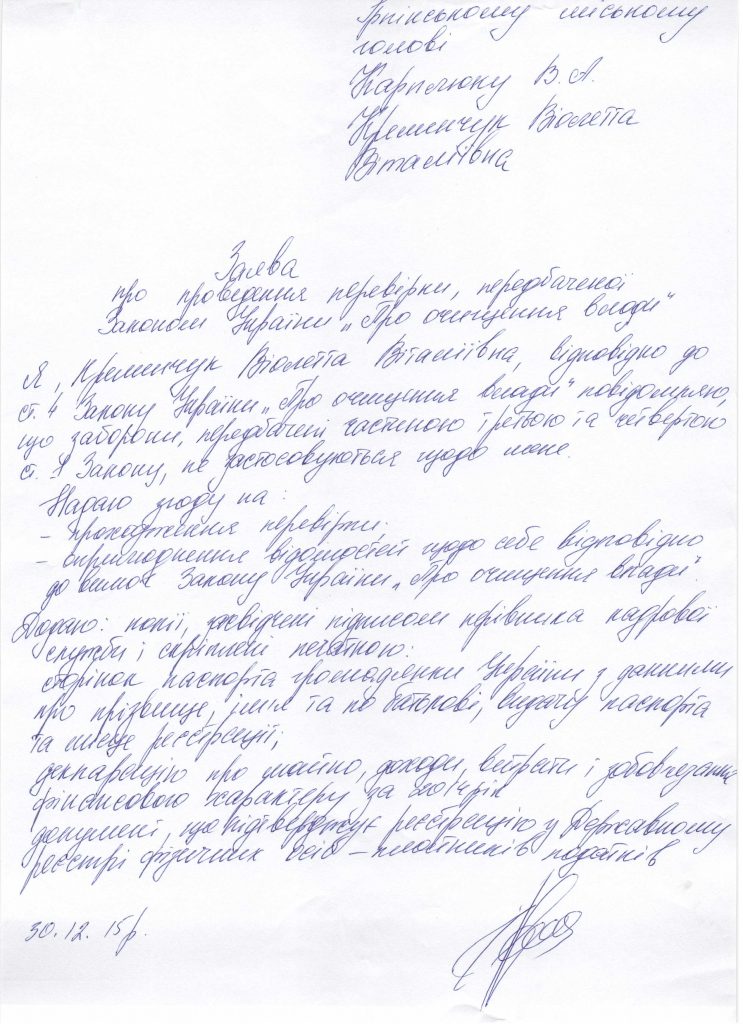 Ірпінському міському
голові
Карплюку В.А.
Кременчук Віолетта
Віталіївна
Заява
про проведення перевірки, передбаченої
Законом України „Про очищення влади"
Я, Кременчук Віолетта Віталіївна, відповідно до
ст. 4 Закону України „Про очищення влади" повідомляю,
що заборони, передбачені частиною третьою та четвертою
ст. 1 Закону, не застосовуються щодо мене.
Надаю згоду на:
- проходження перевірки;
- оприлюднення відомостей щодо себе відповідно
до вимог Закону України „Про очищення влади".
Додаю: копії, засвідчені підписом керівника кадрової
служби і скріплені печаткою:
сторінок паспорта громадянки України з данними
про прізвище, імя та по батькові, видачу паспорта
та місце реєстрації;
декларацію про майно, доходи, витрати і зобовʼязання
фінансового характеру за 2014рік
документ, що підтверджує реєстрацію у Державному
реєстрі фізичних осіб – платників податків
30.12.15р.